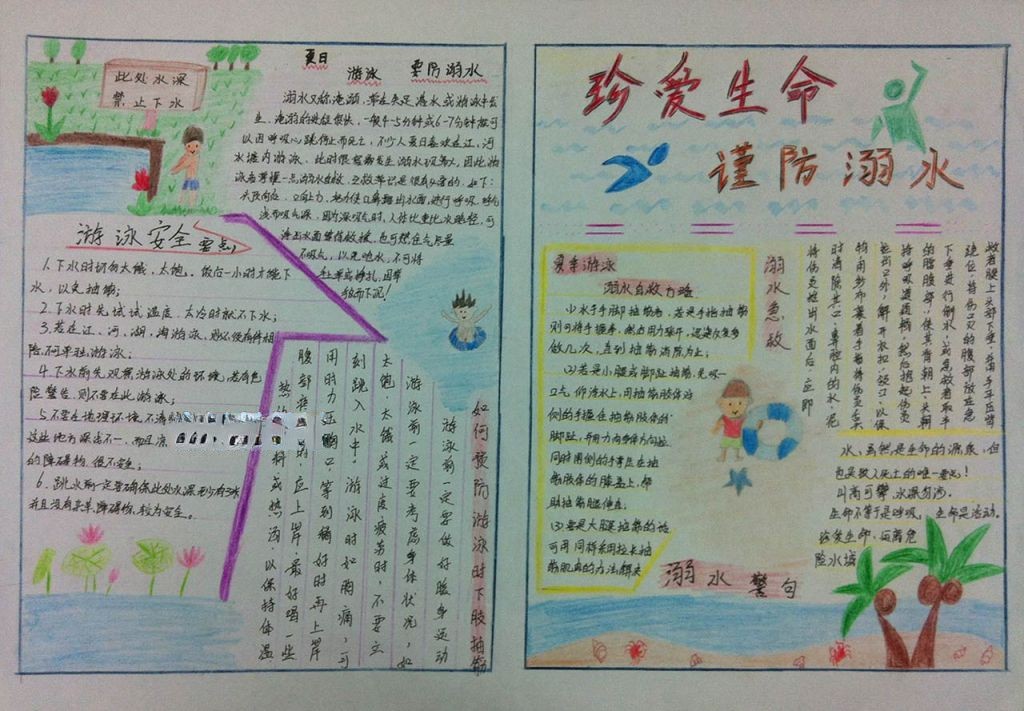 此处水深
禁止下水
夏日 游泳 要防溺水
溺水又称淹溺，常在失足落水或游泳中发
生，淹溺的进程很快，一般4-5分钟或6-7分钟就可
以因呼吸心跳停止而死亡，不少人夏日喜欢在江、河
水塘内游泳，此时很容易发生溺水
头
然而吸气深，因为深吸气时，人体比重比水略轻，可
浮出水面等待救援，
不吸气，以免呛水，不可将
手举或挣扎，因举
手
游泳安全要点
1.下水时切勿太饿、太饱。饭后一小时才能下
水，以免抽筋；
2.下水前先试试水温，太冷时就不下水；
3.若在江、河、湖、海游泳，则必须有伴相
陪，不可单独游泳；
4.下水前先观察游泳处的环境，若有危
险警告，则不要在此游泳；
5.不要在地理环境不清
这些地方深浅不一，而且凉
的障碍物，很不安全；
6.跳水前一定要确保此处水深至少有3米
并且没有杂草、障碍物，较为安全。
如何预防游泳时下肢抽筋
游泳前一定要做好暖身运动
游泳前一定要考虑身体状况，如
太饱、太饿或过度疲劳时，不要立
刻跳入水中，游泳时如胸痛，可
用时力压胸口，等到稍好时再上岸
腹部疼时，应上岸，最好喝一些
热饮料或热汤，以保持体温
珍爱生命
谨防溺水
夏季游泳
溺水自救方法
(1)水中手脚抽筋时，若是手指抽筋
则可将手握拳，然后用力张开，迅速反复多
做几次，直到抽筋消除为止；
(2)若是小腿或脚趾抽筋，先吸一
口气仰浮水上，用抽筋肢体对
侧的手握住抽筋肢体的
脚趾，并用力向身体方向拉
同时用同侧的手掌压在抽
筋肢体的膝盖上，帮
助抽筋腿伸直
(3)若是大腿抽筋的话
可用同样采用拉长抽
筋肌肉的方法解决
溺水急救
将伤员抬出水面后，应立即
时清除其口、鼻腔内的水、泥
物，用纱布裹着手指将伤员舌头
拉出口外，解开衣扣、领口，以保
持呼吸道通畅，然后抱起伤员
的腰腹部，使其背朝上、头朝
下垂进行倒水，或是急救者取半
跪位，将伤员的腹部放在急
救者腿上头部下垂，并用手平压背
水，虽然是生命的源泉，但
也是致人死亡的唯一要犯！
叫高可攀，水深勿涉。
生命不等于是呼吸，生命是活动。
珍爱生命，远离危
险水域
溺水警句